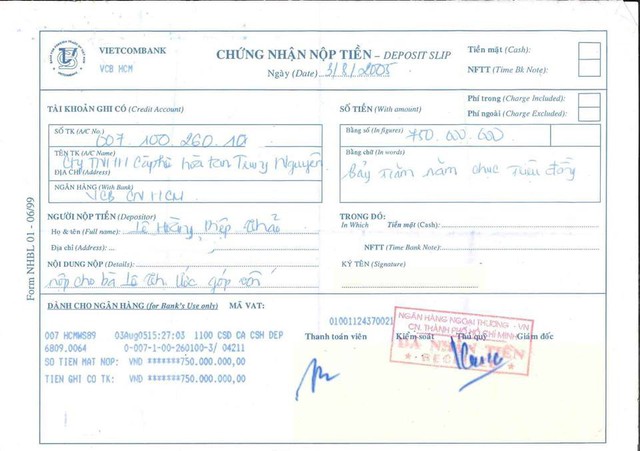 VIETCOMBANK
VCB HCM
CHỨNG NHẬN NỘP TIỀN – DEPOSIT SLIP
Ngày (Date) 3/8/2005
Tiền mặt (Cash):
NFTT (Time Bk Note):
Phí trong (Charge Included):
Phí ngoài (Charge Excluded):
TÀI KHOẢN GHI CÓ (Credit Account)
SỐ TK (A/C No.) 007.100.260.10
TÊN TK (A/C Name)
Cty TNHH Cà phê hòa tan Trung Nguyên
ĐỊA CHỈ (Address)
NGÂN HÀNG (With Bank)
VCB CN HCM
SỐ TIỀN (With amount)
Bằng số (In figures) 750.000.000
Bằng chữ (In words)
Bảy trăm năm chục triệu đồng
NGƯỜI NỘP TIỀN (Depositor)
Họ & tên (Full name): Lê Hoàng Diệp Thảo
Địa chỉ (Address):
NỘI DUNG NỘP (Details):
nộp cho bà Lê Thị Ước góp vốn
TRONG ĐÓ:
In Which
Tiền mặt (Cash):
NFTT (Time Bank Note):
KÝ TÊN (Signature)
Form NHBL 01 - 06/99
DÀNH CHO NGÂN HÀNG (for Bank's Use only) MÃ VAT:
01001124370021
007 HCMWS89 03Aug0515:27:03 1100 CSD CA CSH DEP
6809.0064 0-007-1-00-260100-3/ 04211
SO TIEN MAT NOP: VND *******750.000.000,00
TIEN GHI CO TK: VND *******750.000.000,00
Thanh toán viên Kiểm soát Thủ quỹ Giám đốc
NGÂN HÀNG NGOẠI THƯƠNG - VN
CN. THÀNH PHỐ HỒ CHÍ MINH
ĐÃ NHẬN TIỀN